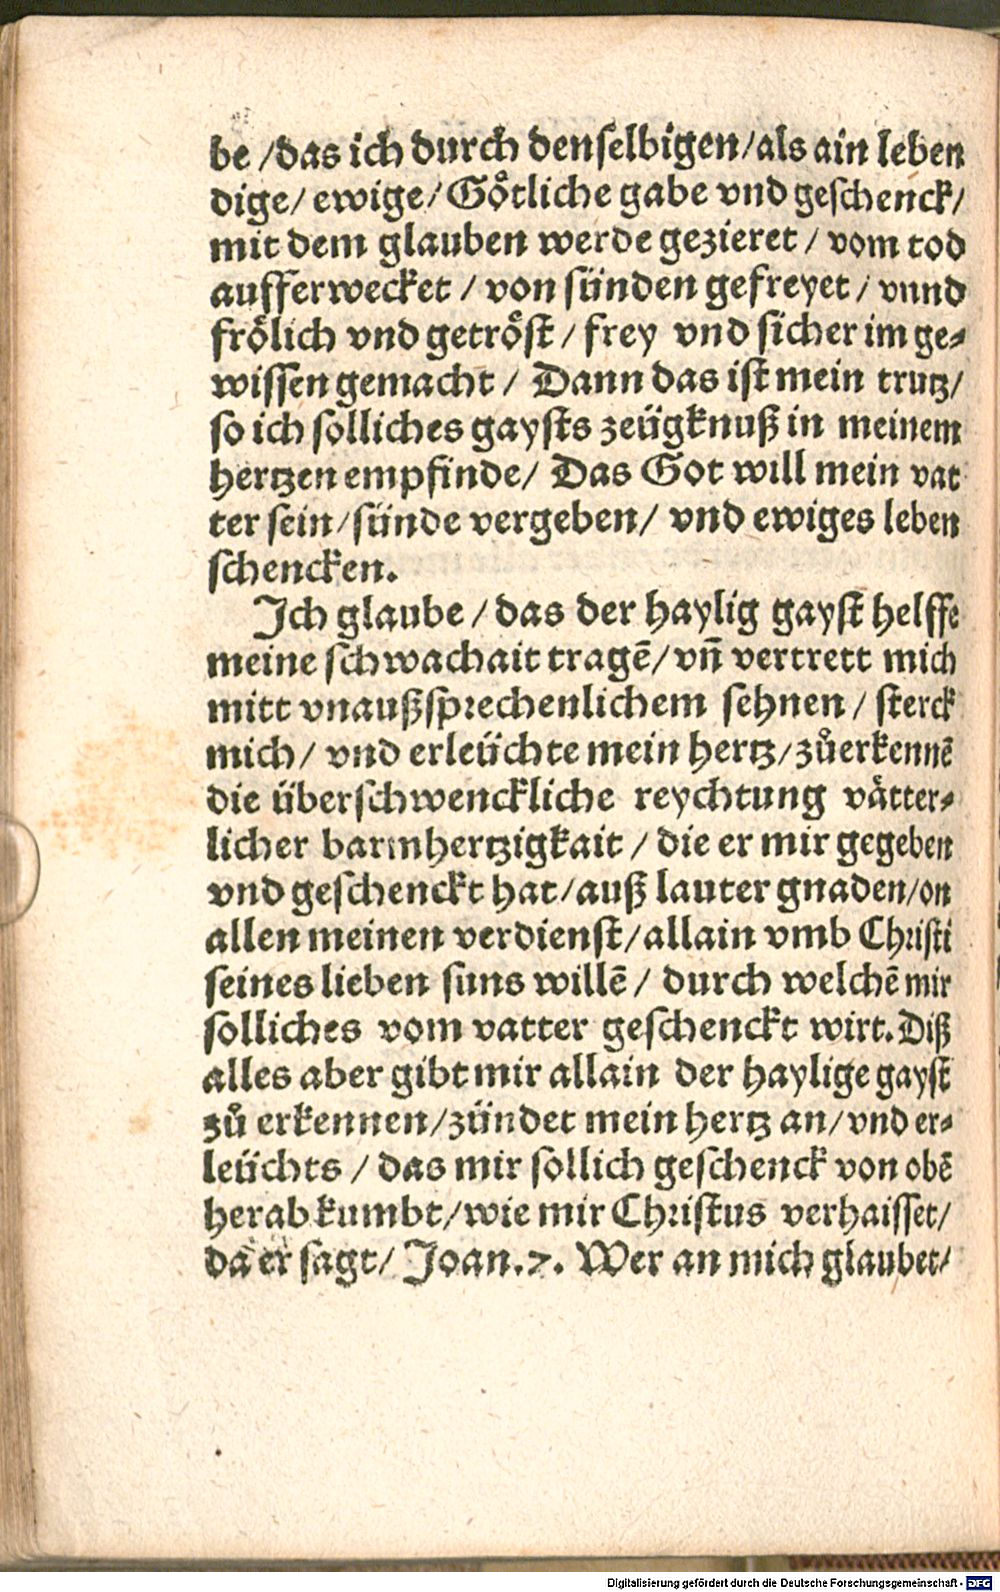 be /das ich durch denselbigen/als ain leben
dige/ ewige/ Goͤtliche gabe vnd geschenck/
mit dem glauben werde gezieret / vom tod
aufferwecket / von sünden gefreyet / vnnd
froͤlich vnd getroͤst / frey vnd sicher im ge⸗
wissen gemacht / Dann das ist mein trutz/
so ich solliches gaysts zeügknuß in meinem
hertzen empfinde/ Das Got will mein vat
ter sein/sünde vergeben/ vnd ewiges leben
schencken.
Ich glaube / das der haylig gayst helffe
meine schwachait tragē/vñ vertrett mich
mitt vnaußsprechenlichem sehnen / sterck
mich/ vnd erleüchte mein hertz/zůerkennē
die überschwenckliche reychtung vaͤtter⸗
licher barmhertzigkait / die er mir gegeben
vnd geschenckt hat/auß lauter gnaden/on
allen meinen verdienst/allain vmb Christi
seines lieben suns willē / durch welchē mir
solliches vom vatter geschenckt wirt.Diß
alles aber gibt mir allain der haylige gayst
zů erkennen/zündet mein hertz an/vnd er⸗
leüchts / das mir sollich geschenck von obē
herab kumbt/wie mir Christus verhaisset/
da er sagt/ Joan.7. Wer an mich glaubet/
Digitalisierung gefördert durch die Deutsche Forschungsgemeinschaft - DFG